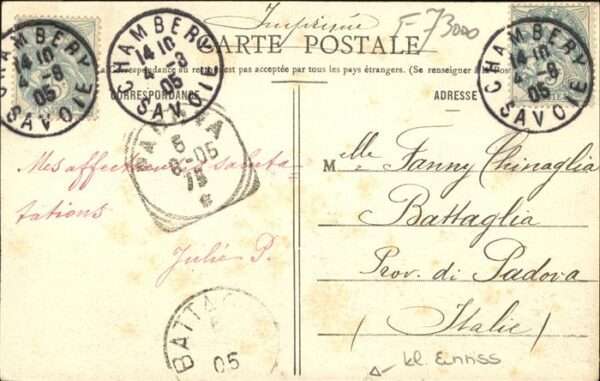 CHAMBERY
14 10
4 -8
05
SAVOIE
CHAMBERY
14 10
-8
05
SAVOIE
CHAMBERY
14 10
-8
05
SAVOIE
Imprimé
F-73000
CARTE POSTALE
La Correspondance au recto n'est pas acceptée par tous les pays étrangers. (Se renseigner à la Poste)
CORRESPONDANCE
ADRESSE
5
8-05
Mes affectueuses saluta-
tations
Julie P.
Mlle Fanny Chinaglia
Battaglia
Prov. di Padova
(Italie)
BATTAG
05
kl. Einriss